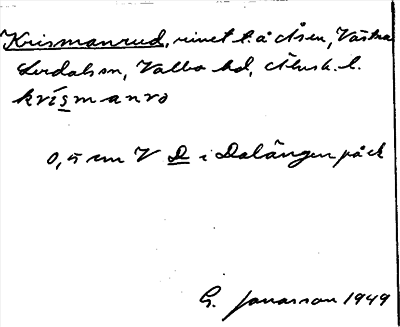 Krismanrud, rivet t. å Åsen, Västra
Lerdalsn, Valbo hd, Älvsb. l.
krismanrö
0,5 cm V D i Dalängen på ek
G. Jonasson 1949